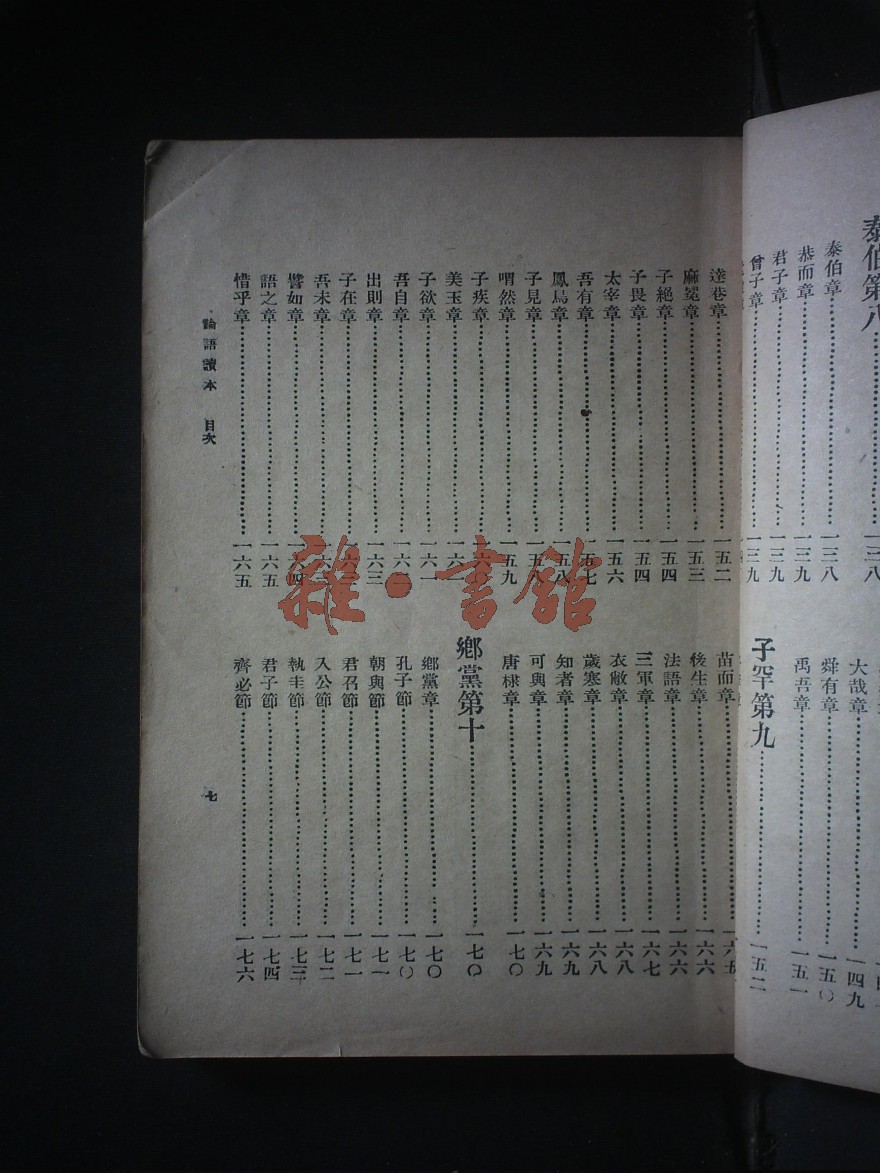 泰伯第八……一三八
泰伯章……一三八
恭而章……一三九
君子章……一三九
曾子章……一三九
大哉章……一四九
舜有章……一五〇
禹吾章……一五一
子罕第九……一五二
達巷章……一五二
麻冕章……一五三
子絕章……一五四
子畏章……一五四
太宰章……一五六
吾有章……一五七
鳳鳥章……一五八
子見章……一五八
喟然章……一五九
子疾章
美玉章……一六一
子欲章……一六一
吾自章
出則章……一六三
子在章
吾未章
譬如章……一六四
語之章……一六五
惜乎章……一六五
苗而章……一六五
後生章……一六六
法語章……一六六
三軍章……一六七
衣敝章……一六八
歲寒章……一六八
知者章……一六九
可與章……一六九
唐棣章……一七〇
鄉黨第十……一七〇
鄉黨章……一七〇
孔子節……一七〇
朝與節……一七一
君召節……一七一
入公節……一七二
執圭節……一七三
君子節……一七四
齊必節……一七六
論語讀本 目次
七
雜·書館